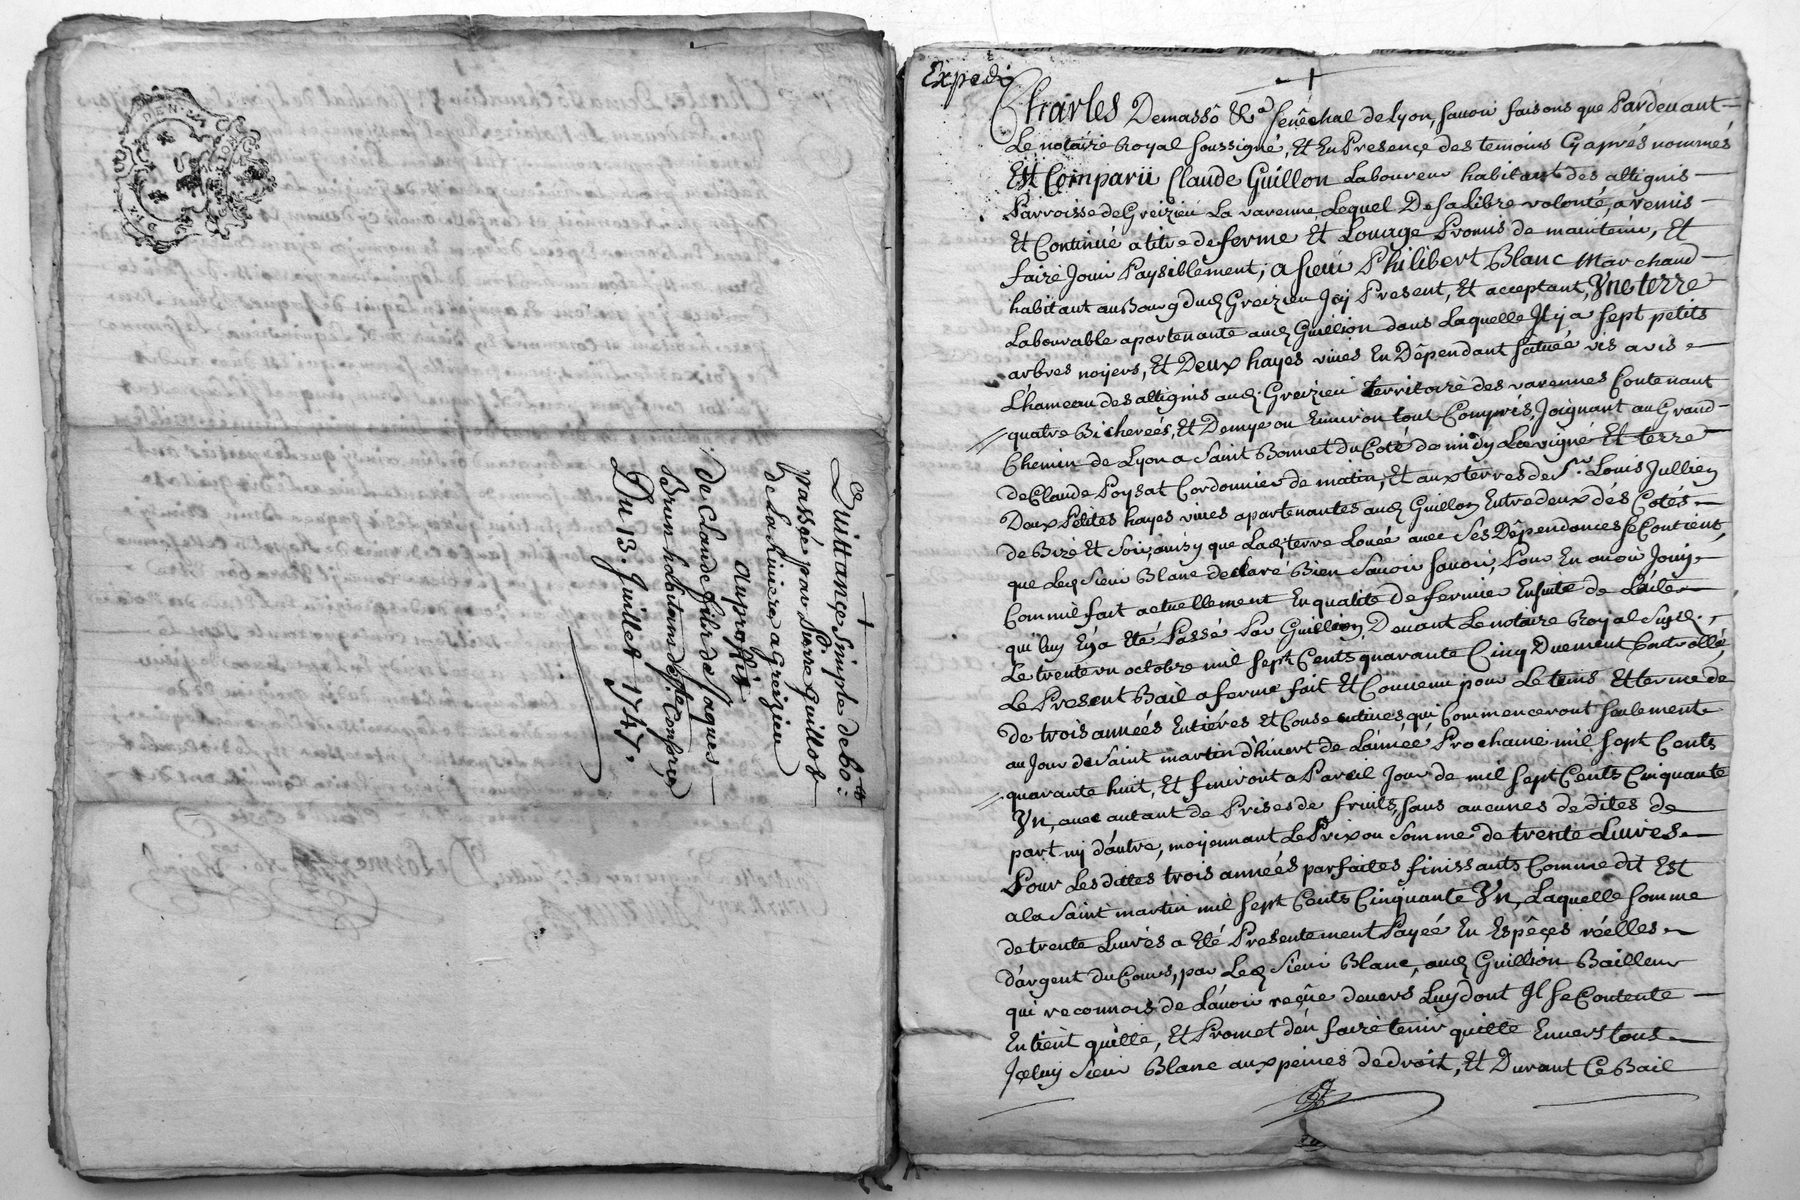 Quittance simple de 60:ˡᵗ
Passée par Pierre Guillot
de La Riviere, a Greizieu
au proffit
de Claude fils de Jaques
Brun habitant de Sᵗᵉ Consorce
Du 13. Juillet 1747.
Expedié
Charles Demassô &ᵃ Senêchal de Lyon, savoir faisons que Pardevant
Le notaire Royal soussigné, Et En Presençe des temoins Cy aprés nommés
Est Comparu Claude Guillon Laboureur habitant des attignis
Parroisse de Greizieu La varenne Lequel De sa Libre volonté, a remis
Et Continué a titre de ferme Et Louage Promis de maintenir, Et
faire Jouir Paysiblement, a sieur Philibert Blanc Marchand
habitant au Bourg dud. Greizieu Jcy Present, Et acceptant, Vne terre
Labourable apartenante aud. Guillion dans Laquelle Il y a sept petits
arbres noyers, Et Deux hayes vives En Dêpendant situéé vis a vis
L'hameau des attignis aud. Greizieu territoire des varennes Contenant
quatre Bicherées, Et Demye ou Environ tout Compris, Joignant au Grand
Chemin de Lyon a Saint Bonnet du Coté de midy La vigne Et terre
de Claude Poysat Cordonnier de matin, Et aux terres de Sʳ. Louis Jullien
Deux Petites hayes vives apartenantes aud. Guillon Entredeux dés Cotés
de Bize Et Soir, ainsy que Lad. terre Louéé avec Ses Dêpendances se Contient,
que Led. Sieur Blanc declare Bien Savoir savoir, Pour En avoir Jouy,
Comm'il fait actuellement En qualité De fermier Ensuite de
qui luy En a Eté Passé Par Guillion Devant Le notaire Royal Sujd.
Le trente un octobre mil sept Cents quarante Cinq Duement Controllé,
Le Present Bail a ferme fait Et Convenu pour Le tems Et terme de
De trois années Entiéres Et Consecutives, qui Commenceront seulement
au Jour de Saint martin d'hivert de L'année Prochaine mil sept Cents
quarante huit, Et finiront a Pareil Jour de mil sept Cents Cinquante
Vn, avec autant de Prises de fruits, sans aucunes de dites de
part ny d'autre, moyennant Le Prix ou Somme de trente Livres
Pour Les dittes trois années parfaites finissants Comme dit Est
a la Saint martin mil sept Cents Cinquante Vn, Laquelle somme
de trente Livres a Eté Presentement Payéé En Espêçes réelles
d'argent du Cours, par Led. Sieur Blanc, aud. Guillion Bailleur
qui reconnois de L'avoir reçûe devers Luy dont Il se Contente
En tient quitte, Et Promet d'en faire tenir quitte Envers tous
Jçeluy Sieur Blanc aux peines de droit, Et Durant Ce Bail